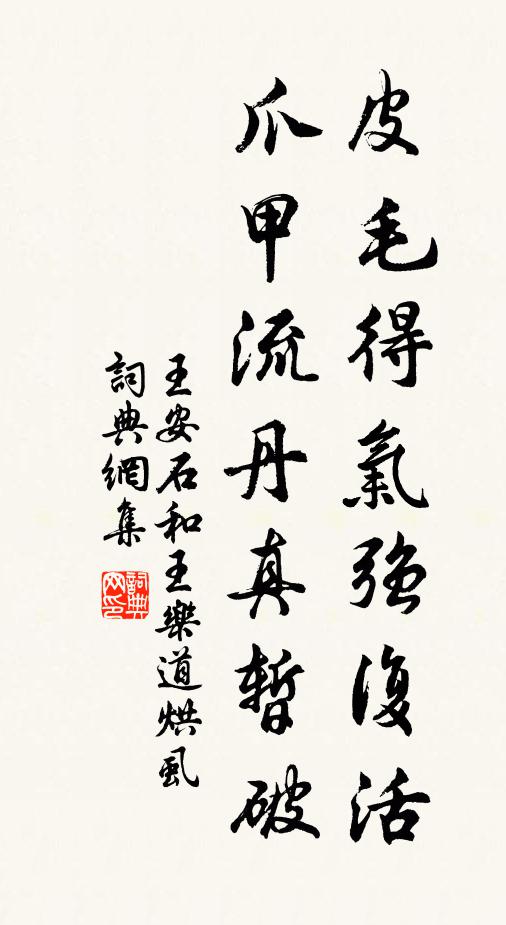 皮毛得氣強復活
爪甲流丹真暫破
王安石和王樂道烘虱
詞典網集
詞典网印